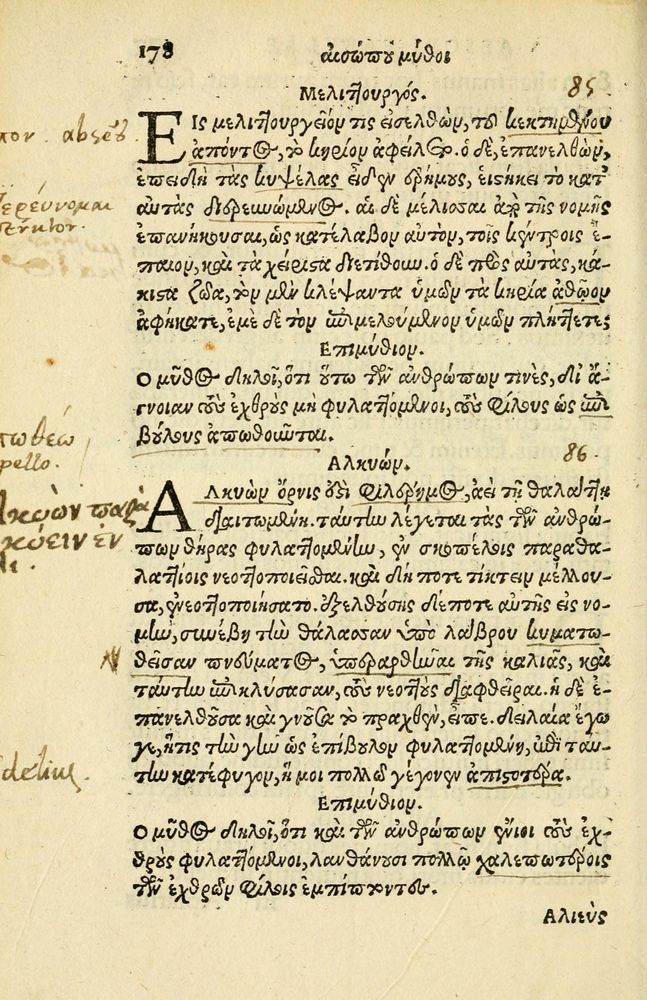 178 αἰσώπου μῦθοι
Μελιττουργός. 85
Εἰς μελιττουργεῖόν τις εἰσελθὼν, τοῦ κεκτημένου
ἀπόντος, τὸ κηρίον ἀφείλετο. ὁ δὲ, ἐπανελθὼν,
ἐπειδὴ τὰς κυψέλας εἶδεν ἐρήμους, εἱστήκει τὸ κατ᾽
αὐτὰς διερευνώμενος. αἱ δὲ μέλισσαι ἀπὸ τῆς νομῆς
ἐπανήκουσαι, ὡς κατέλαβον αὐτὸν, τοῖς κέντροις ἔ-
παιον, καὶ τὰ χείριστα διετίθουν. ὁ δὲ πρὸς αὐτὰς, κά-
κιστα ζῶα, τὸν μὲν κλέψαντα ὑμῶν τὰ κηρία ἀθῶον
ἀφήκατε, ἐμὲ δὲ τὸν ἐπιμελούμενον ὑμῶν πλήττετε;
Ἐπιμύθιον.
Ο μῦθος δηλοῖ, ὅτι οὕτω τῶν ἀνθρώπων τινὲς, δι᾽ ἄ-
γνοιαν τοὺς ἐχθροὺς μὴ φυλαττόμενοι, τοὺς φίλους ὡς ἐπι-
βούλους ἀπωθοῦνται.
Αλκυών. 86
Αλκυὼν ὄρνις ἐστὶ φιλέρημος, ἀεὶ τῇ θαλάττῃ
διαιτωμένη. ταύτην λέγεται τὰς τῶν ἀνθρώ-
πων θήρας φυλαττομένην, ἐν σκοπέλοις παραθα-
λαττίοις νεοττοποιεῖσθαι. καὶ δή ποτε τίκτειν μέλλου-
σα, ἐνεοττοποιήσατο. ἐξελθούσης δέ ποτε αὐτῆς εἰς νο-
μὴν, συνέβη τὴν θάλασσαν ὑπὸ λάβρου κυματω-
θεῖσαν πνεύματος, ὑπεραρθῆναι τῆς καλιᾶς, καὶ
ταύτην ἐπικλύσασαν, τοὺς νεοττοὺς διαφθεῖραι. ἡ δὲ ἐ-
πανελθοῦσα καὶ γνοῦσα τὸ πραχθὲν, εἶπε. δειλαία ἔγω
γε, ἥτις τὴν γῆν ὡς ἐπίβουλον φυλαττομένη, ἐπὶ ταύ-
την κατέφυγον, ἥ μοι πολλῷ γέγονεν ἀπιστοτέρα.
Ἐπιμύθιον.
Ο μῦθος δηλοῖ, ὅτι καὶ τῶν ἀνθρώπων ἔνιοι τοὺς ἐχ-
θροὺς φυλαττόμενοι, λανθάνουσι πολλῷ χαλεπωτέροις
τῶν ἐχθρῶν φίλοις ἐμπίπτοντες.
Αλιεὺς